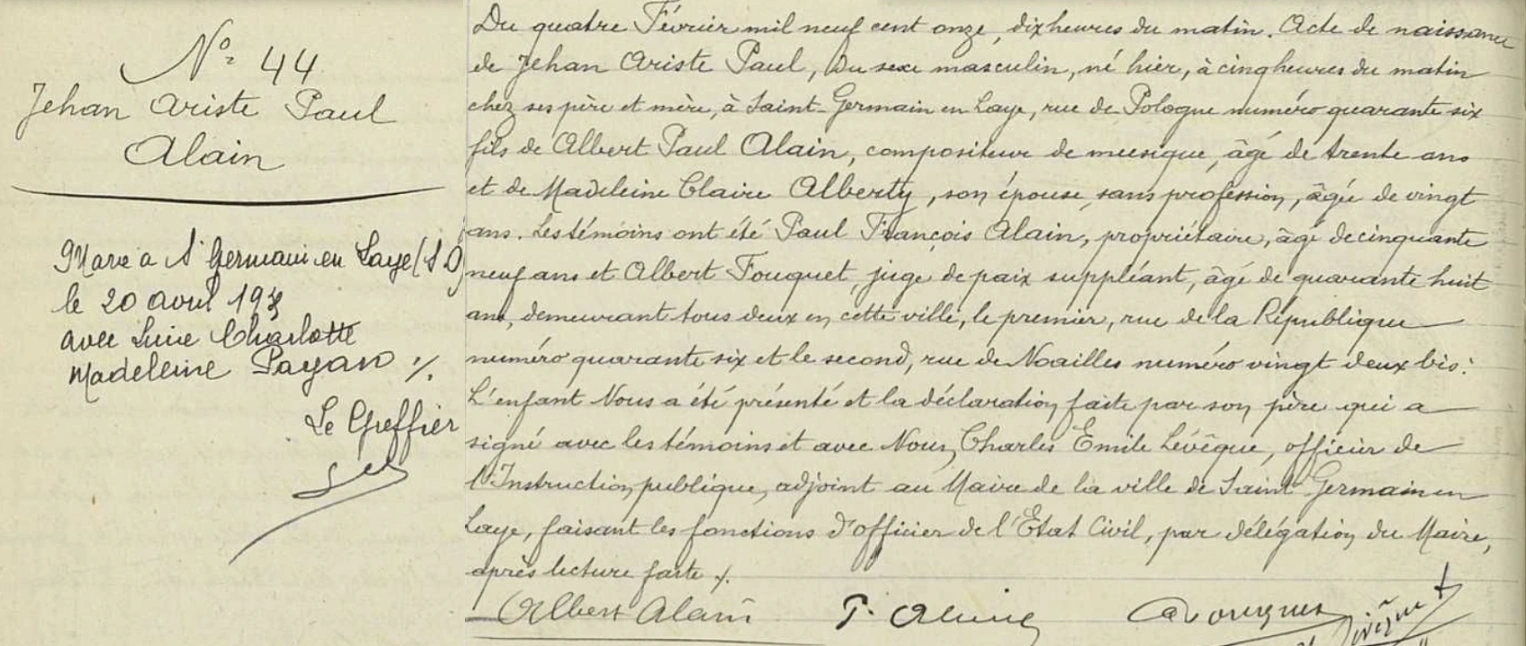 N° 44
Jehan Ariste Paul
Alain
Marié à St Germain en Laye (S O)
le 20 avril 19
avec Lucie Charlotte
Madeleine Payan ./.
Le Greffier
Du quatre Février mil neuf cent onze, dix heures du matin. Acte de naissance
de Jehan Ariste Paul, du sexe masculin, né hier, à cinq heures du matin
chez ses père et mère, à Saint-Germain en Laye, rue de Pologne numéro quarante six
fils de Albert Paul Alain, compositeur de musique, âgé de trente ans
et de Madeleine Claire Alberty, son épouse, sans profession, âgée de vingt
ans. Les témoins ont été Paul François Alain, propriétaire, âgé de cinquante
neuf ans et Albert Fouquet, juge de paix suppléant, âgé de quarante huit
ans, demeurant tous deux en cette ville, le premier, rue de la République
numéro quarante six et le second, rue de Noailles numéro vingt deux bis.
L'enfant Nous a été présenté et la déclaration faite par son père qui a
signé avec les témoins et avec Nous, Charles Emile Lévêque, officier de
l'Instruction publique, adjoint au Maire de la ville de Saint Germain en
Laye, faisant les fonctions d'officier de l'Etat Civil, par délégation du Maire,
après lecture faite ./.
Albert Alain P. Alain